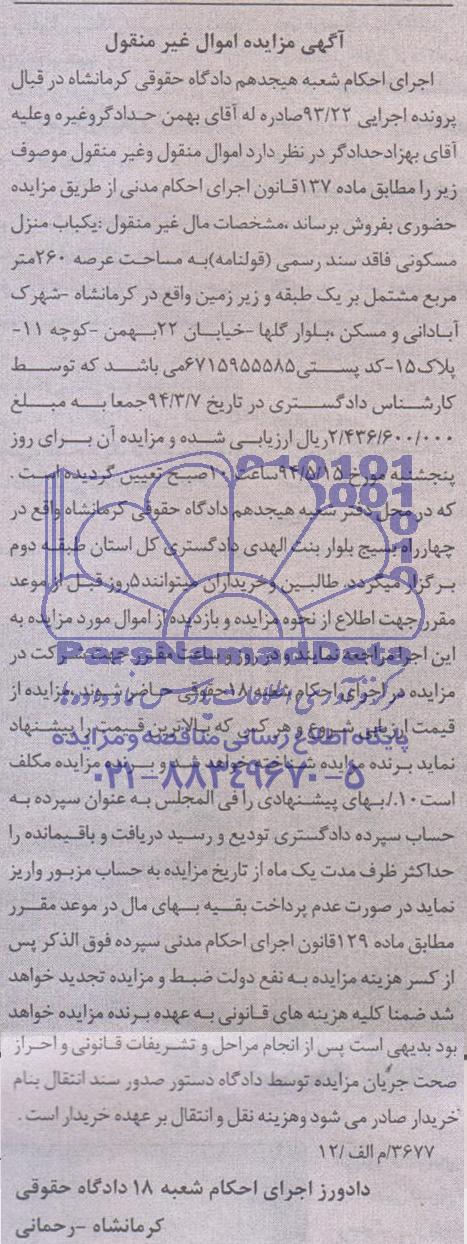 آگهی مزایده اموال غیر منقول
اجرای احکام شعبه هیجدهم دادگاه حقوقی کرمانشاه در قبال
پرونده اجرایی ۹۳/۲۲صادره له آقای بهمن حدادگروغیره وعلیه
آقای بهزادحدادگر در نظر دارد اموال منقول وغیر منقول موصوف
زیر را مطابق ماده ۱۳۷قانون اجرای احکام مدنی از طریق مزایده
حضوری بفروش برساند ،مشخصات مال غیر منقول :یکباب منزل
مسکونی فاقد سند رسمی (قولنامه)به مساحت عرصه ۲۶۰متر
مربع مشتمل بر یک طبقه و زیر زمین واقع در کرمانشاه -شهرک
آبادانی و مسکن ،بلوار گلها -خیابان ۲۲بهمن -کوچه ۱۱-
پلاک۱۵-کد پستی۶۷۱۵۹۵۵۵۸۵می باشد که توسط
کارشناس دادگستری در تاریخ ۹۴/۳/۷جمعا به مبلغ
۲/۴۳۶/۶۰۰/۰۰۰ریال ارزیابی شده و مزایده آن برای روز
پنجشنبه مورخ ۹۴/۵/۱۵ساعت ۱۰صبح تعیین گردیده است .
که در محل دفتر شعبه هیجدهم دادگاه حقوقی کرمانشاه واقع در
چهارراه بسیج بلوار بنت الهدی دادگستری کل استان طبقه دوم
برگزار میگردد. طالبین وخریداران میتوانند۵روز قبل از موعد
مقررجهت اطلاع از نحوه مزایده و بازدیداز اموال مورد مزایده به
این اجرا مراجعه نمایند و در روز و ساعت مقرر جهت شرکت در
مزایده در اجرای احکام شعبه ۱۸حقوقی حاضر شوند ،مزایده از
قیمت ارزیابی شروع و هر کس که بالاترین قیمت را پیشنهاد
نماید برنده مزایده شناخته خواهد شد و برنده مزایده مکلف
است ۱۰٪بهای پیشنهادی را فی المجلس به عنوان سپرده به
حساب سپرده دادگستری تودیع و رسید دریافت و باقیمانده را
حداکثر ظرف مدت یک ماه از تاریخ مزایده به حساب مزبور واریز
نماید در صورت عدم پرداخت بقیه بهای مال در موعد مقرر
مطابق ماده ۱۲۹قانون اجرای احکام مدنی سپرده فوق الذکر پس
از کسر هزینه مزایده به نفع دولت ضبط و مزایده تجدید خواهد
شد ضمنا کلیه هزینه های قانونی به عهده برنده مزایده خواهد
بود بدیهی است پس از انجام مراحل و تشریفات قانونی و احراز
صحت جریان مزایده توسط دادگاه دستور صدور سند انتقال بنام
خریدار صادر می شود وهزینه نقل و انتقال بر عهده خریدار است .
۳۶۷۷/م الف /۱۲
دادورز اجرای احکام شعبه ۱۸ دادگاه حقوقی
کرمانشاه -رحمانی
ParsNamadData
پایگاه اطلاع رسانی مناقصه و مزایده
۰۲۱-۸۸۳۴۹۶۷۰-۵